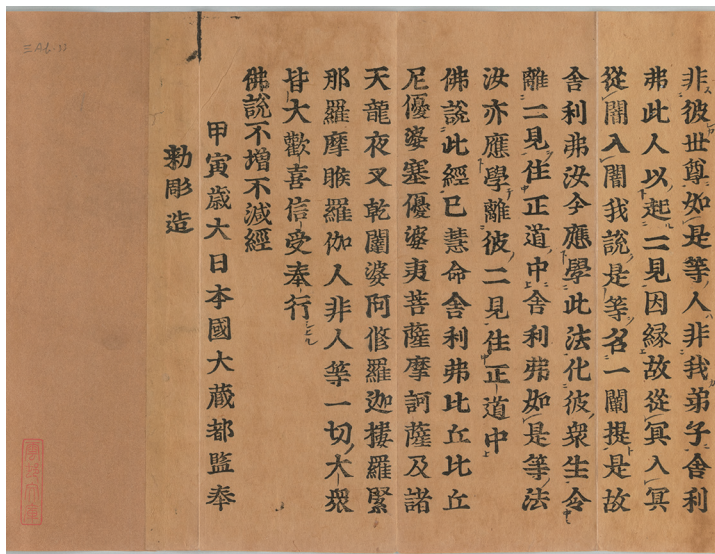 非彼世尊如是等人非我弟子舍利
弗此人以起二見因縁故從冥入冥
從闇入闇我說是等名一闡提是故
舍利弗汝今應學此法化彼衆生令
離二見住正道中舍利弗如是等法
汝亦應學離彼二見住正道中
佛說此經已慧命舍利弗比丘比丘
尼優婆塞優婆夷菩薩摩訶薩及諸
天龍夜叉乾闥婆阿修羅迦樓羅緊
那羅摩睺羅伽人非人等一切大衆
皆大歡喜信受奉行
佛說不增不減經
甲寅歲大日本國大藏都監奉
勅彫造
雲邨文庫